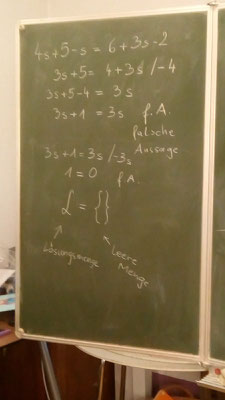 4s+5-s = 6+3s-2
3s+5 = 4+3s /-4
3s+5-4 = 3s
3s+1 = 3s f.A.
falsche
Aussage
3s+1=3s /-3s
1=0 f.A.
L = {}
Lösungsmenge
leere
Menge